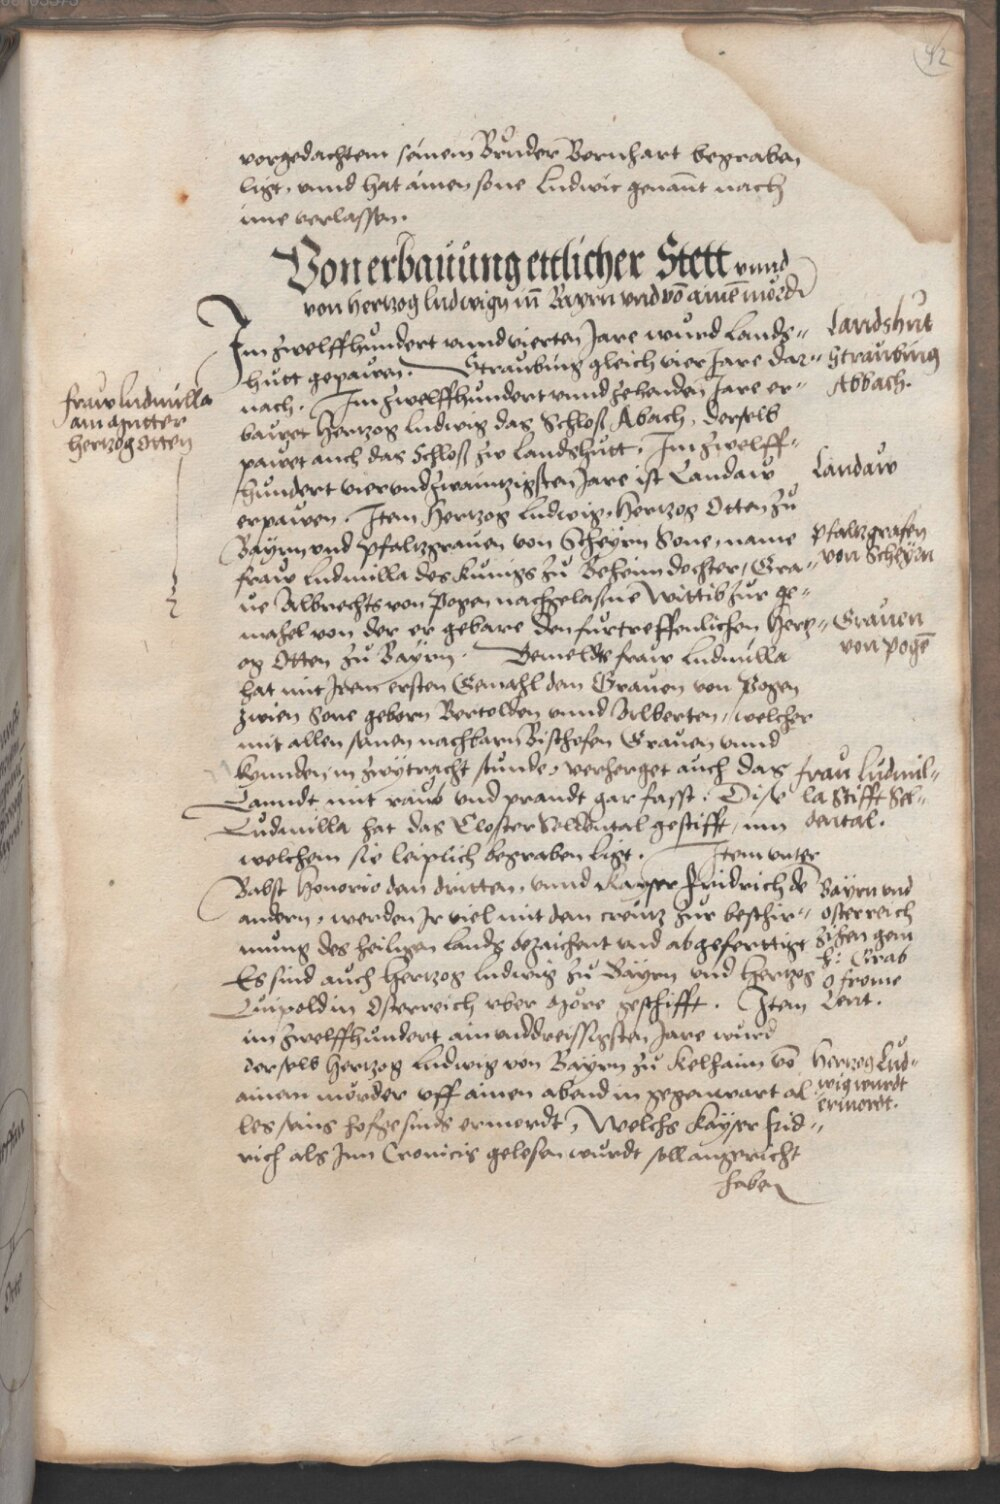 42
vorgedachtem seinem Brüder Bernhart begraben
ligt, vnnd hat ainen sone Ludwic genannt nach
ime verlassen.
Von erbaüüng ettlicher Stett vnnd
von hertzog ludwign in Bayrn vnd võ ainẽ mördr
Im zwelffhundert vnnd vierten Jare würd Lands-
hutt gepawen. Straubing gleich vier Jare dar-
nach. Im zwelffhundert vnnd zehenden Jare er-
bawet Hertzog Ludwig das Schloß Abach, derselb
pawet auch das Schloß zw Landshutt. Im zwelff-
hundert vier vnd zwaintzigsten Jare ist Landaw
erpawen. Item Hertzog Ludwig, Hertzog Otten zu
Bayrn vnd Pfaltzgrauen von Scheyrn Sone, name
fraw Ludmilla des kunigs zü Beheim dochter, Gra-
ue Albrechts von Bogen nachgelassne Wittib zur ge-
mahel von der er gebare den furtreffenlichen Hertz-
og Otten zu Bayrn. Bemelte fraw Ludmilla
hat mit Irem ersten Gemahl dem Grauen von Bogen
zwien Sone geborn Bertolden vnnd Alberten, welcher
mit allen seinen nachbarn Bischofen Grauen vnnd
kunden in zwytracht stunde, verherget auch das
Lanndt mit raub vnd prandt gar fasst. Dise
Ludmilla hat das Closter Selldental gestifft, inn
welchem sie leiplich begraben ligt. Item vnter
Babst Honorio den dritten, vnnd Kayser Fridrich dẽ
andern, werden Ir viel mit dem creutz zur beschir-
mung des heiligen Lands bezaichent vnd abgeferttigt
Es sind auch Hertzog Ludwig zu Bayrn vnd Hertzog
Luipold in Osterreich vber Möre geschifft. Item
im zwelffhundert ain vnd dreissigsten Jare wurd
derselb Hertzog Ludwig von Bayrn zu Kelhaim võ
ainem mörder vff ainen abend in gegenwart al
les seins hofgesinds ermordt, Welchs Kayser Frid-
rich als Inn Cronicis gelesen wurdt soll angericht
haben
fraw ludmilla
ain mutter
hertzog otten
Landshut
Straubing
Abbach.
Landaw
Pfaltzgrafen
von Scheyrn
Grauen
von pogẽ
frau Ludmil-
la Stifft Sel-
dental.
Bayrn vnd
osterreich
zihen gem
h: Grab
o frome
Leut.
Hertzog Lud-
wig wurdt
ermordt.